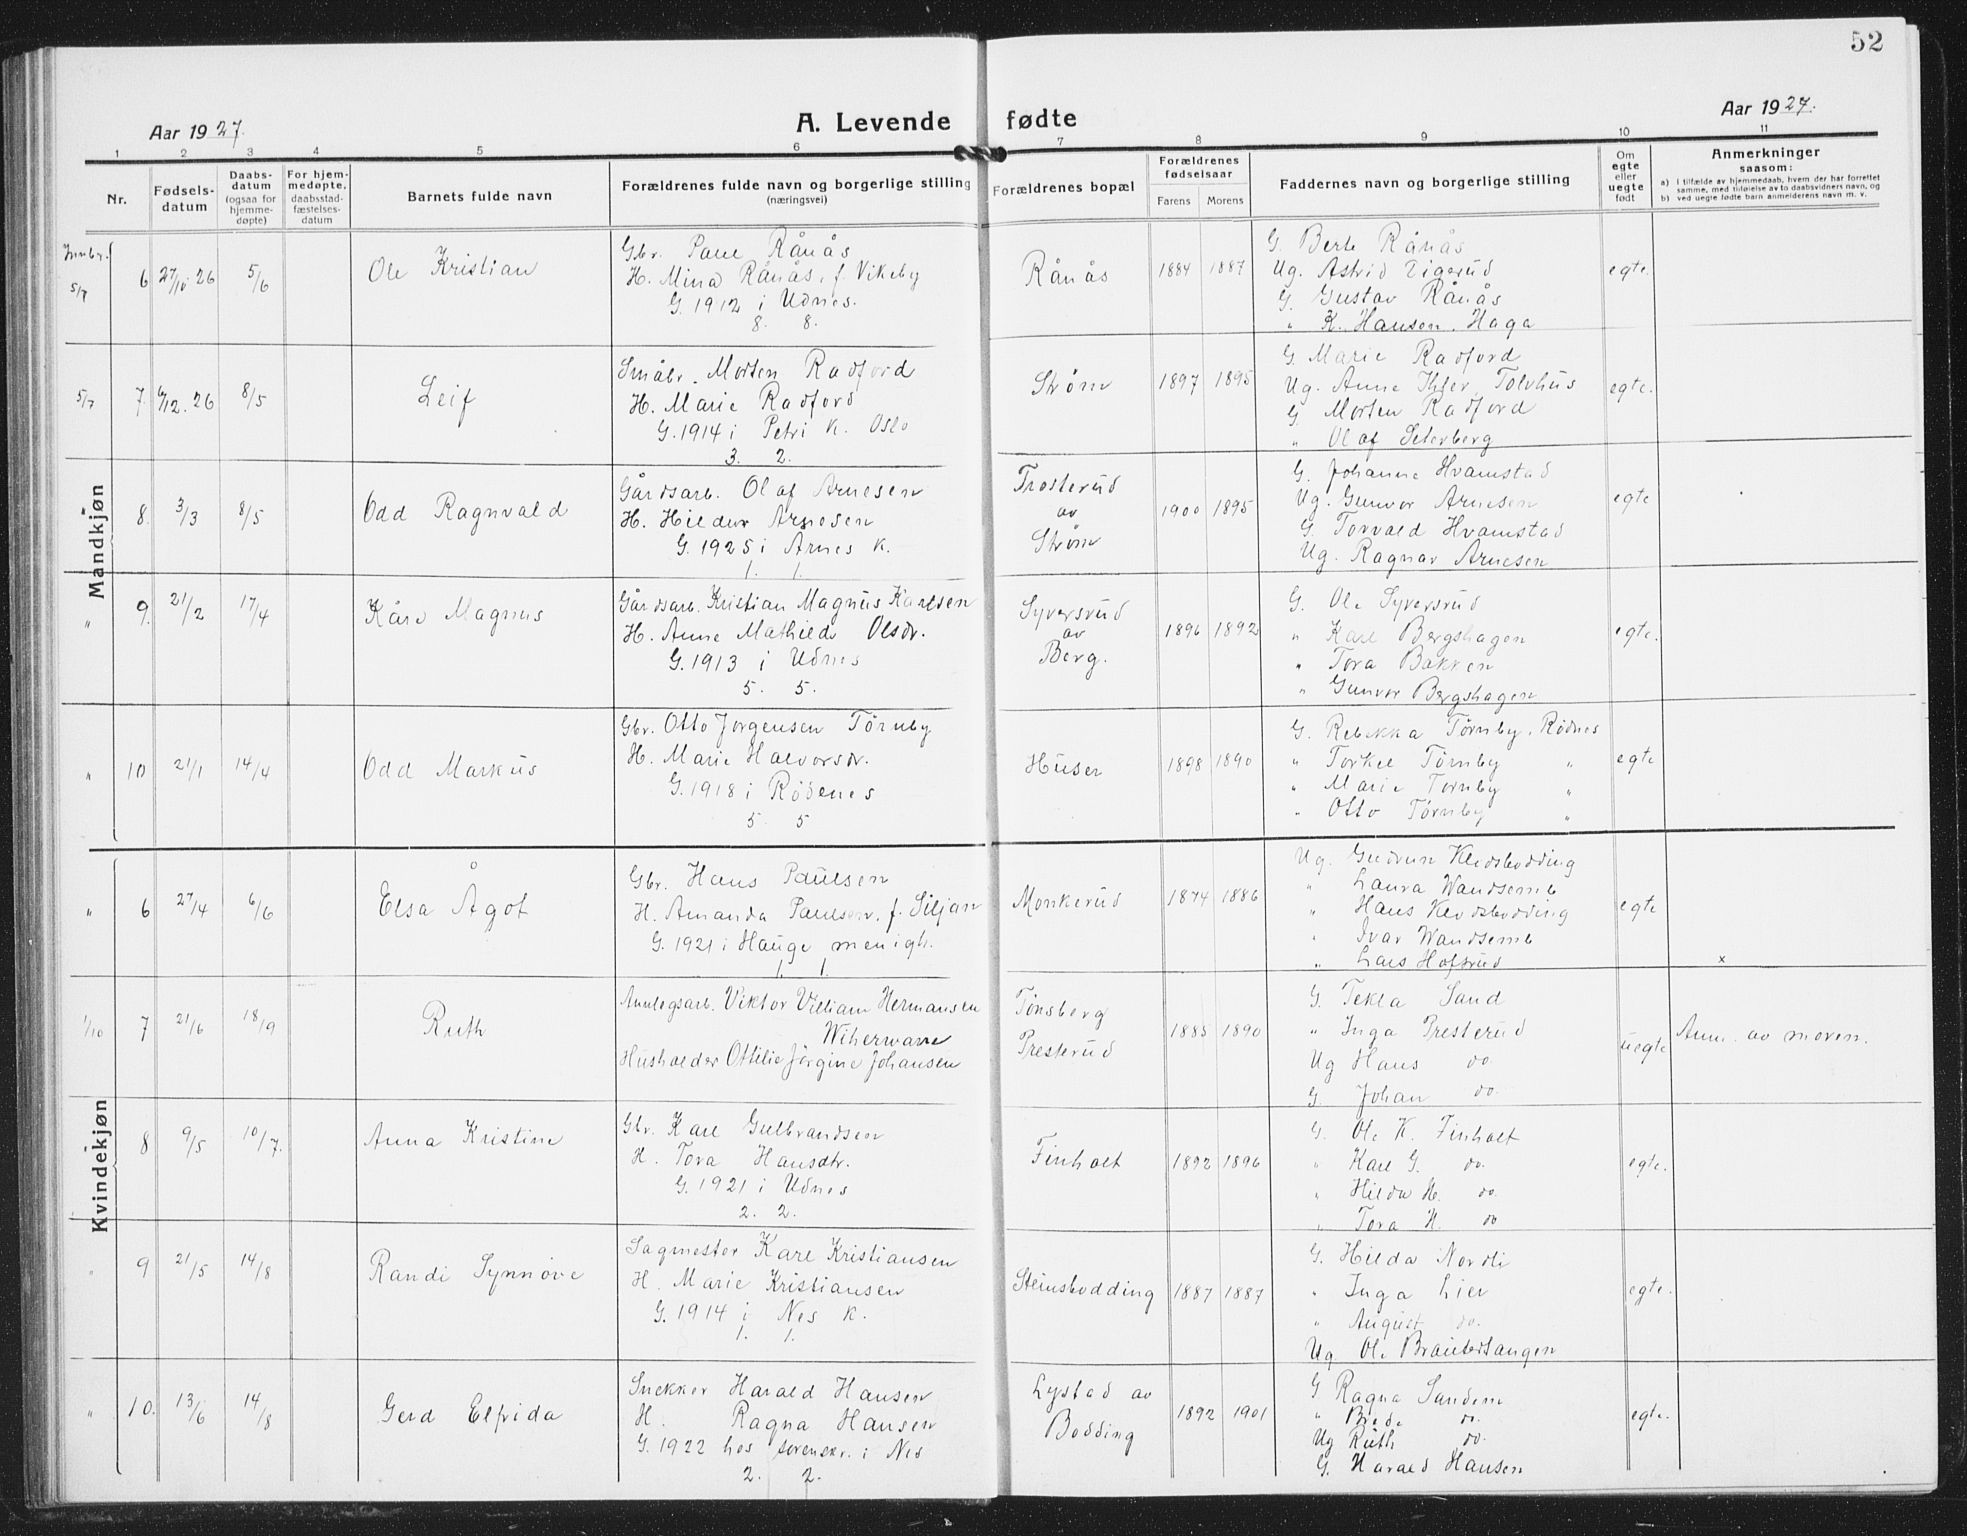 52
Aar 1927.
A. Levende fødte
Aar 1927.
1 2 3 4 5 6 7 8 9 10 11
Nr.
Fødsels-
datum
Daabs-
datum
(ogsaa for
hjemme-
døpte)
For hjem-
medøpte,
daabsstad-
fæstelses-
datum
Barnets fulde navn
Forældrenes fulde navn og borgerlige stilling
(næringsvei)
Forældrenes bopæl
Forældrenes
fødselsaar
Farens Morens
Faddernes navn og borgerlige stilling
Om
egte
eller
uegte
født
Anmerkninger
saasom:
a) I tilfælde av hjemmedaab, hvem der har forrettet
samme, med tilføielse av to daabsvidners navn, og
b) ved uegte fødte barn anmelderens navn m. v.
Mandkjøn
Innbr.
5/7
6 27/10 26 5/6
Ole Kristian
Gbr. Paul Rånås
H. Mina Rånås, f. Vikeby
G. 1912 i Udnes.
8. 8.
Rånås
1884 1887
G. Berte Rånås
Ug. Astrid Tigerud
G. Gustav Rånås
" K. Hansen Haga
egte.
5/7
7. 6/12. 26 8/5
Leif
Småbr. Morten Radford
H. Marie Radford
G. 1914 i Petri K. Oslo
3. 2.
Strøm
1897 1895
G. Marie Radford
Ug. Anne Ihler Tolvhus
G. Morten Radford
" Olaf Seterberg
egte.
"
8. 3/3 8/5
Odd Ragnvald
Gårdsarb. Olaf Arnesen
H. Hildur Arnesen
G. 1925 i Arnes K.
1. 1.
Trosterud
av
Strøm
1900 1895
G. Johanne Hvamstad
Ug. Gunvor Arnesen
G. Torvald Hvamstad
Ug. Ragnar Arnesen
egte
"
9. 21/2 17/4
Kåre Magnus
Gårdsarb. Kristian Magnus Karlsen
H. Anne Mathilde Olsdr.
G. 1913 i Udnes
5. 5.
Syversrud
av
Berg.
1896 1892
G. Ole Syversrud
" Karl Bergshagen
" Tora Bakken
" Gunvor Bergshagen
egte.
"
10 21/1 14/4
Odd Markus
Gbr. Otto Jørgensen Tørnby
H. Marie Halvorsdr.
G. 1918 i Rødenes
5. 5
Huser
1898 1890
G. Rebekka Tørnby, Rødnes
" Torkel Tørnby "
" Marie Tørnby "
" Otto Tørnby "
egte
Kvindekjøn
"
6 27/4 6/6
Elsa Ågot
Gbr. Hans Paulsen
H. Amanda Paulsen, f. Siljan
G. 1921 i Hauge menigh.
1. 1.
Monkerud
1874 1886
Ug. Gudrun Kledsbodding
" Laura Wandsemb
" Hans Kledsbodding
" Ivar Wandsemb
" Lars Hofsrud
egte
x
1/10
7 21/6 18/9
Ruth
Annlegsarb. Viktor Villiam Hermansen
Wiherware
Husholder Ottilie Jørgine Johansen
Tønsberg
Presterud
1885 1890
G. Tekla Sand
" Inga Presterud
Ug Hans do
G. Johan do.
uegte
Anm. av moren.
8 9/5 10/7.
Anna Kristine
Gbr. Karl Gulbrandsen
H. Tora Hansdtr.
G. 1921 i Udnes
2. 2.
Finholt
1892 1896
G. Ole K. Finholt
" Karl G. do.
" Hilda H. do.
" Tora H. do
egte.
"
9 21/5 14/8
Randi Synnøve
Sagmester Karl Kristiansen
H. Marie Kristiansen
G. 1914 i Nes K.
1. 1.
Steinsbodding
1887 1887
G. Hilda Nordli
" Inga Lier
" August do.
Ug Ole Brautersangen
egte.
"
10. 13/6 14/8
Gerd Elfrida
Snekker Harald Hansen
H. Ragna Hansen
G. 1922 hos sorenskr. i Nes
2. 2.
Lystad av
Bodding
1892 1901
G Ragna Sandem
" Brede do.
Ug Ruth do.
G. Harald Hansen
egte.